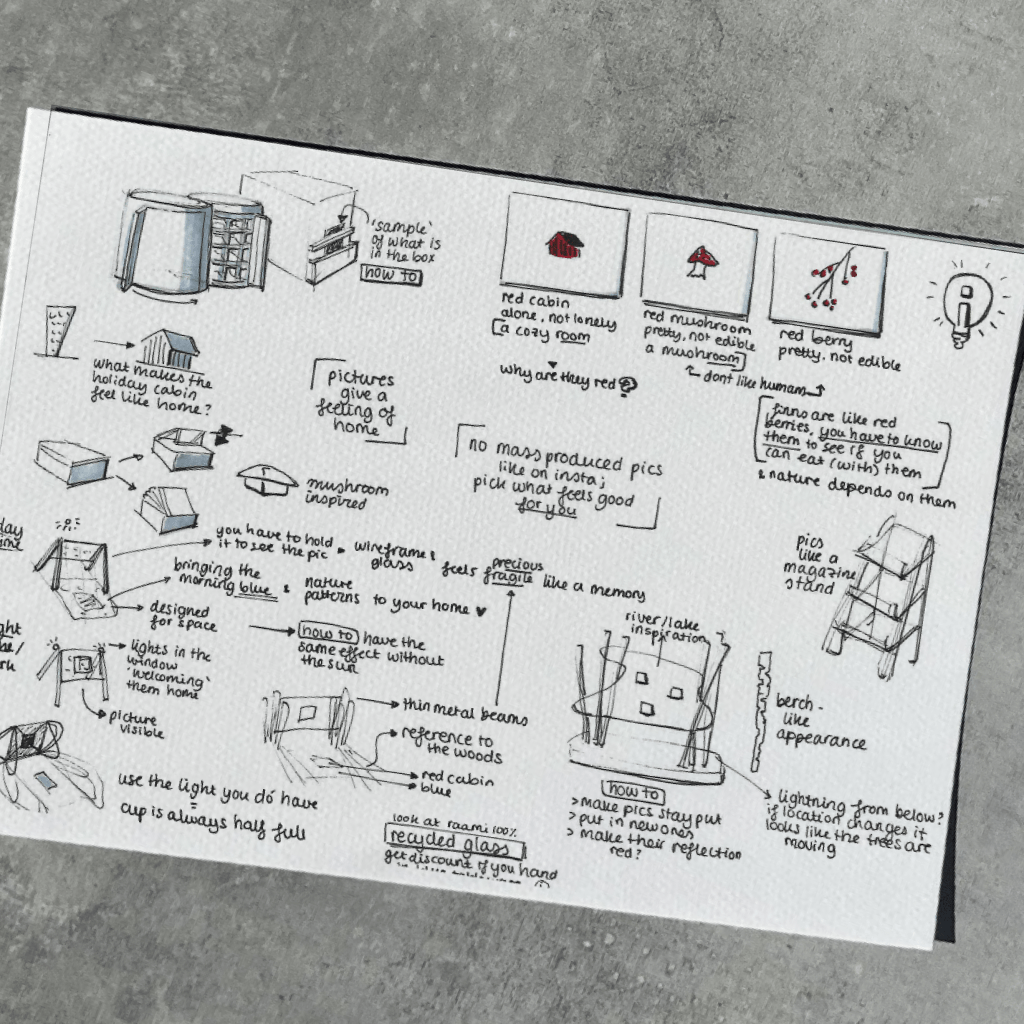 'sample'
of what is
in the box
how to
red cabin
alone, not lonely
a cozy room
red mushroom
pretty, not edible
a mushroom
red berry
pretty, not edible
why are they red?
dont like human
finns are like red
berries, you have to know
them to see if you
can eat (with) them
& nature depends on them
what makes the
holiday cabin
feel like home?
pictures
give a
feeling of
home
no mass produced pics
like on insta;
pick what feels good
for you
mushroom
inspired
you have to hold
it to see the pic
wireframe &
glass
feels
precious
fragile
like a memory
bringing the
morning blue
&
nature
patterns
to your home
designed
for space
how to have the
same effect without
the sun
lights in the
window
'welcoming'
them home
picture
visible
thin metal beams
reference to
the woods
red cabin
blue
use the light you do have
=
cup is always half full
look at raami 100%
recycled glass
get discount if you hand
river/lake
inspiration
pics
like a
magazine
stand
berch-
like
appearance
how to
> make pics stay put
> put in new ones
> make their reflection
red?
lightning from below?
if location changes it
looks like the trees are
moving